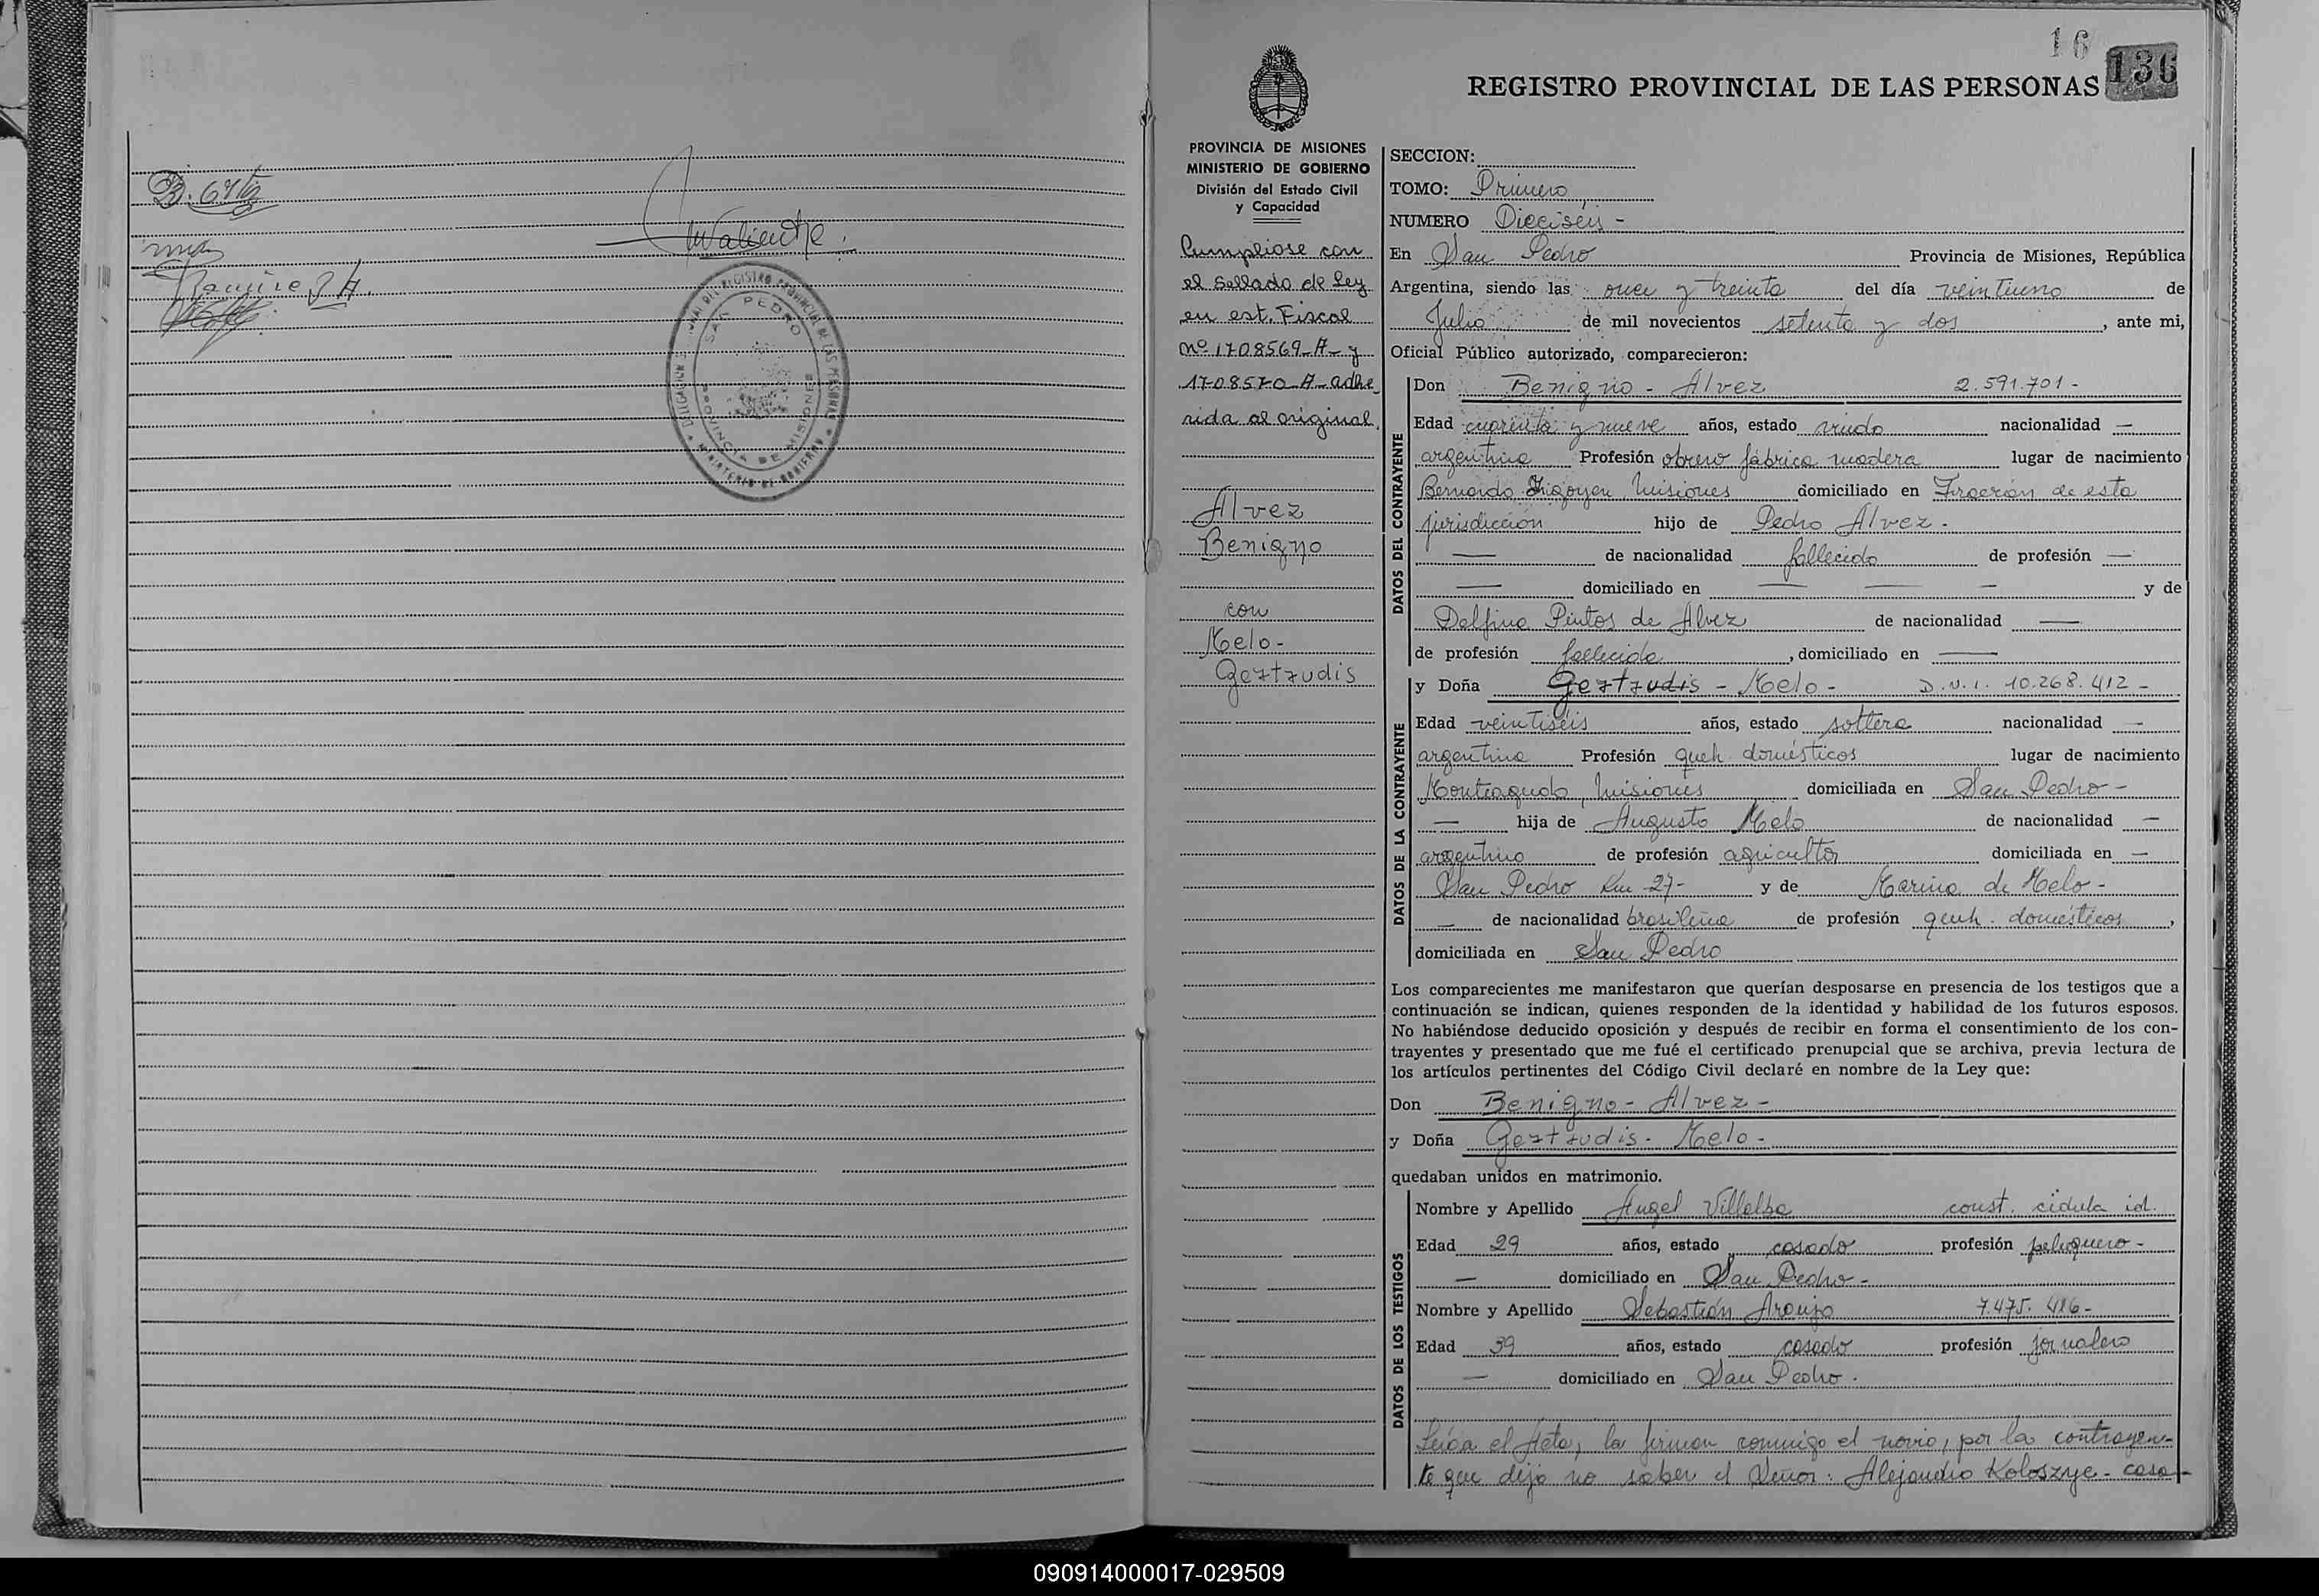 B. Ortiz
Valiente
Ramirez A.
DELEGACION REGISTRO PROVINCIAL DE LAS PERSONAS
SAN PEDRO
PROVINCIA DE MISIONES
MINISTERIO DE GOBIERNO
16
136
REGISTRO PROVINCIAL DE LAS PERSONAS
PROVINCIA DE MISIONES
MINISTERIO DE GOBIERNO
División del Estado Civil
y Capacidad
Cumpliose con
el Sellado de Ley
en est. Fiscal
nº 1708569-A- y
1708570-A-adhe
rida al original.
Alvez
Benigno
con
Melo-
Gertrudis
SECCION:
TOMO: Primero
NUMERO Dieciseis -
En San Pedro Provincia de Misiones, República
Argentina, siendo las once y treinta del día veintiuno de
Julio de mil novecientos setenta y dos, ante mi,
Oficial Público autorizado, comparecieron:
DATOS DEL CONTRAYENTE
Don Benigno - Alvez 2.591.701-
Edad cuarenta y nueve años, estado viudo nacionalidad —
argentina Profesión obrero fábrica madera lugar de nacimiento
Bernardo Irigoyen Misiones domiciliado en de esta
jurisdicción hijo de Pedro Alvez -
— de nacionalidad fallecido de profesión —
— domiciliado en — — - y de
Delfina Pintos de Alvez de nacionalidad —
de profesión fallecida, domiciliado en —
DATOS DE LA CONTRAYENTE
y Doña Gertrudis - Melo - D.N.I. 10.268.412 -
Edad veintiséis años, estado soltera nacionalidad —
argentina Profesión queh. domésticos lugar de nacimiento
Monteagudo, Misiones domiciliada en San Pedro -
— hija de Augusto Melo de nacionalidad —
argentino de profesión agricultor domiciliada en —
San Pedro Km 27- y de Marina de Melo -
— de nacionalidad brasileña de profesión queh. domésticos,
domiciliada en San Pedro
Los comparecientes me manifestaron que querían desposarse en presencia de los testigos que a
continuación se indican, quienes responden de la identidad y habilidad de los futuros esposos.
No habiéndose deducido oposición y después de recibir en forma el consentimiento de los con-
trayentes y presentado que me fué el certificado prenupcial que se archiva, previa lectura de
los artículos pertinentes del Código Civil declaré en nombre de la Ley que:
Don Benigno - Alvez -
y Doña Gertrudis - Melo -
quedaban unidos en matrimonio.
DATOS DE LOS TESTIGOS
Nombre y Apellido Angel Villalba const. cédula id.
Edad 29 años, estado casado profesión peluquero -
— domiciliado en San Pedro -
Nombre y Apellido Sebastián Araujo 7.475.416-
Edad 39 años, estado casado profesión jornalero
— domiciliado en San Pedro.
Leída el Acta, la firman conmigo el novio, por la contrayen-
te que dijo no saber el Señor: Alejandro Koloszye - casa-
090914000017-029509